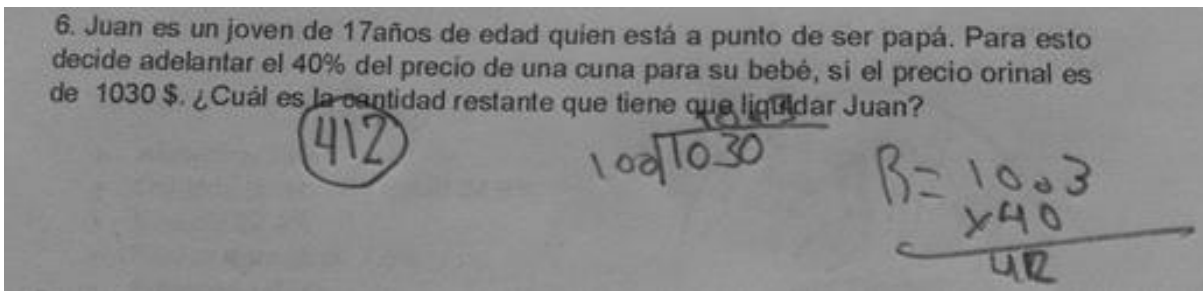 6. Juan es un joven de 17años de edad quien está a punto de ser papá. Para esto
decide adelantar el 40% del precio de una cuna para su bebé, si el precio orinal es
de 1030 $. ¿Cuál es la cantidad restante que tiene que liquidar Juan?
412
100 1030
R= 10.3
x40
412